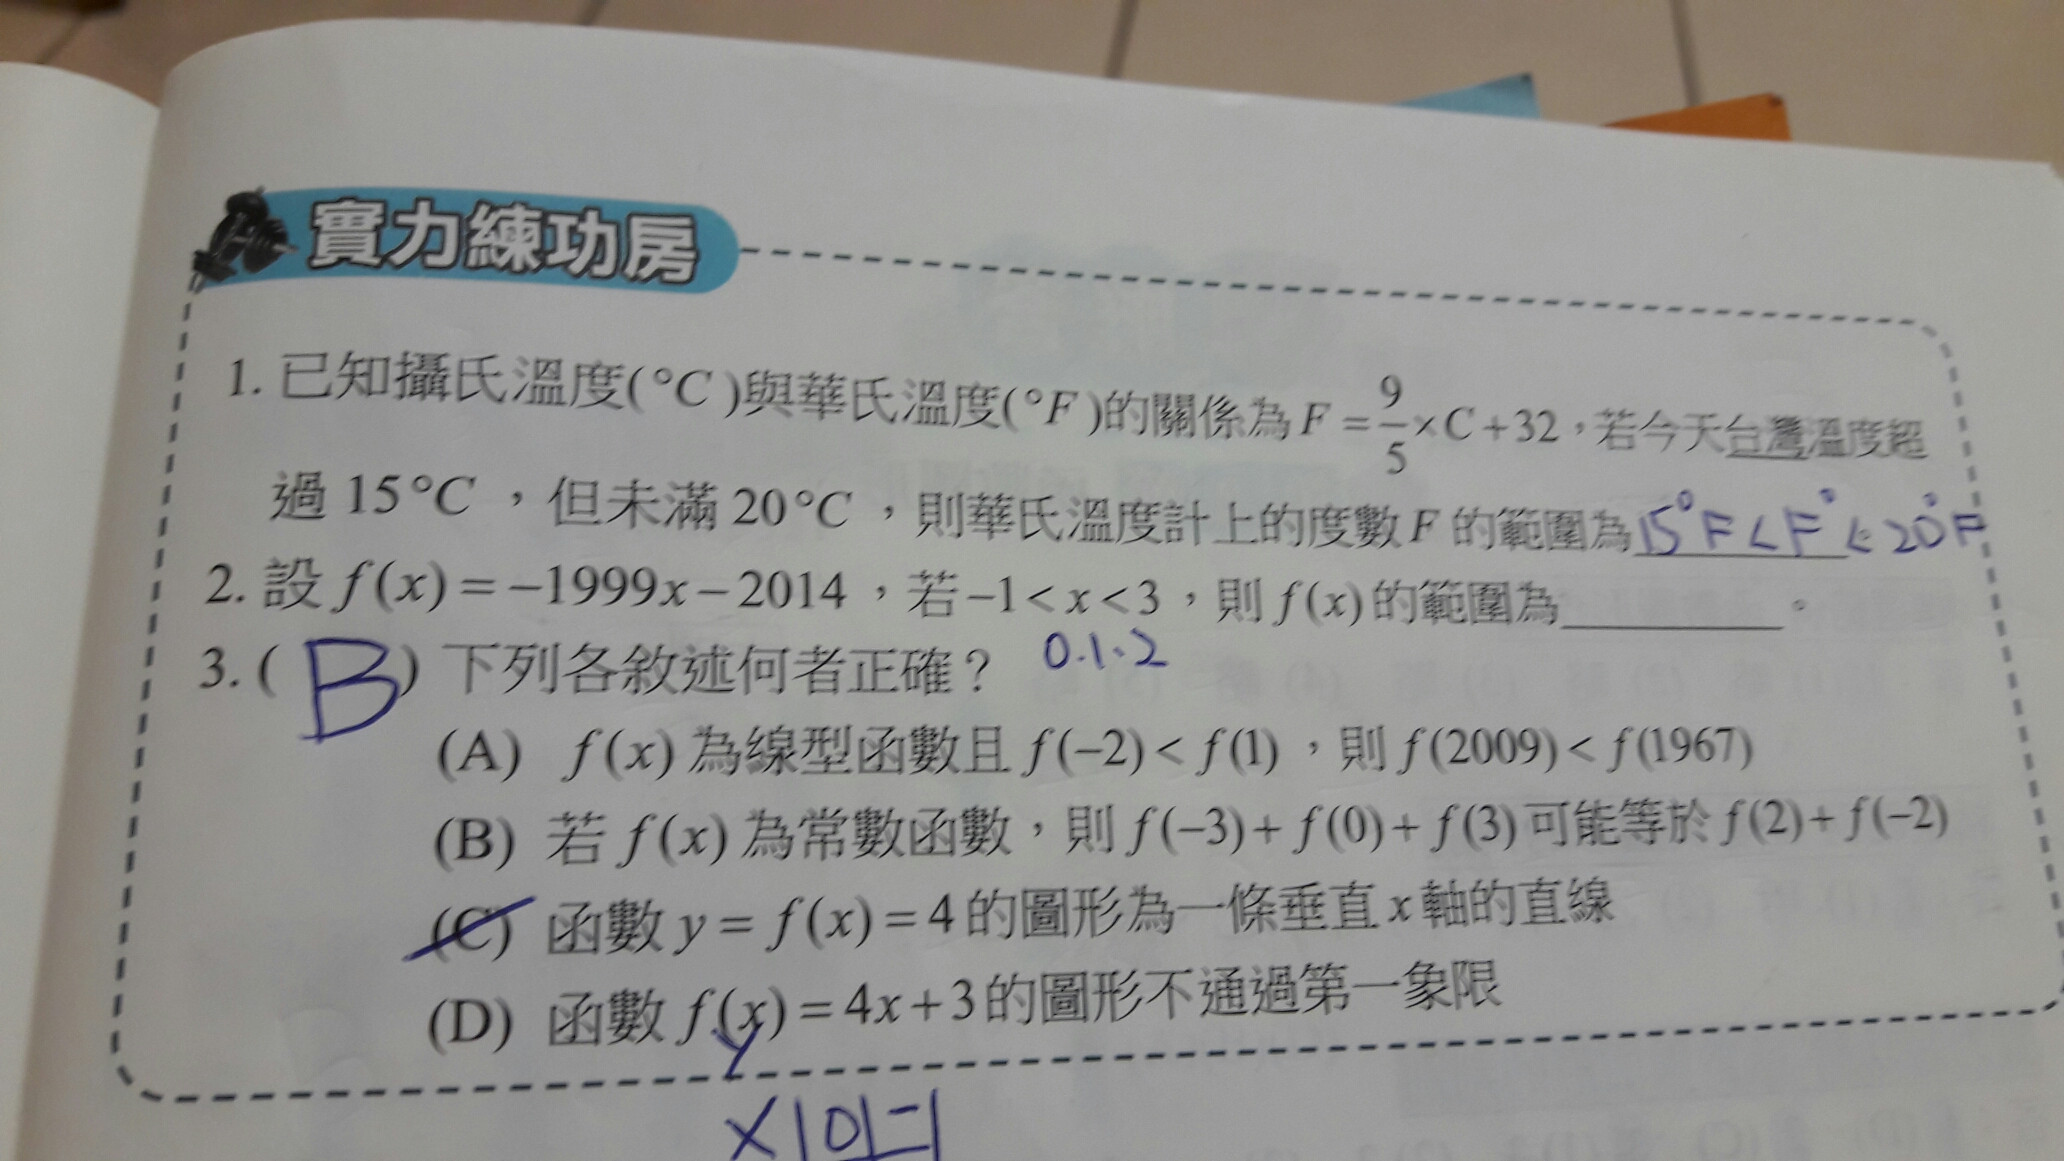 實力練功房
1. 已知攝氏溫度(°C)與華氏溫度(°F)的關係為 F = 9/5 × C + 32，若今天台灣溫度超
過 15°C ，但未滿 20°C ，則華氏溫度計上的度數 F 的範圍為 15°F < F° < 20°F
2. 設 f(x) = −1999x − 2014 ，若 −1 < x < 3 ，則 f(x) 的範圍為________。
0.1.2
3. ( B ) 下列各敘述何者正確？
(A) f(x) 為線型函數且 f(−2) < f(1) ，則 f(2009) < f(1967)
(B) 若 f(x) 為常數函數，則 f(−3) + f(0) + f(3) 可能等於 f(2) + f(−2)
(C) 函數 y = f(x) = 4 的圖形為一條垂直 x 軸的直線
(D) 函數 f(x) = 4x + 3 的圖形不通過第一象限
y
x | 0 | -1